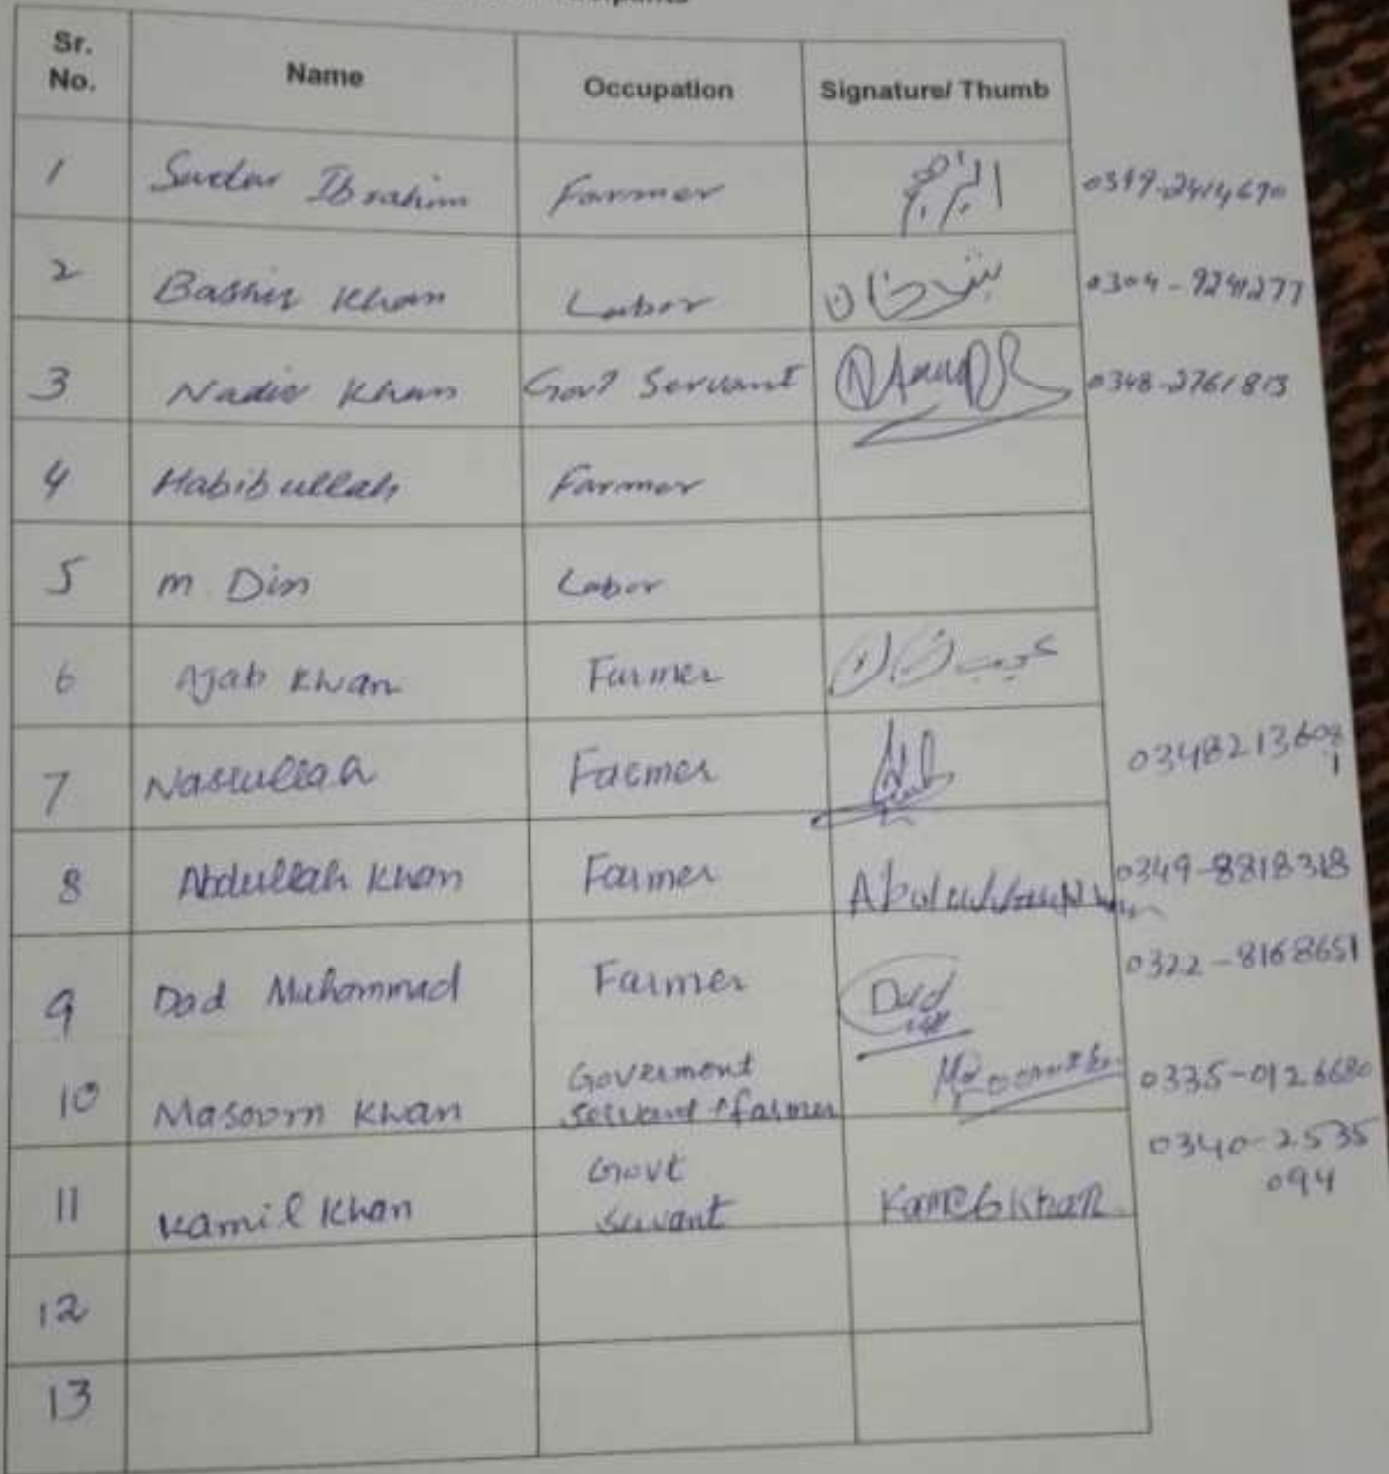 Sr. No. Name Occupation Signature/ Thumb
1 Ibrahim Farmer
2 Bashir Khan Labor بشیر خان 0304-9241277
3 Nadir Khan Govt Servant 0348-2761813
4 Habib ullah Farmer
5 M. Din Labor
6 Ajab Khan Farmer
7 Nasrullah Farmer
8 Abdullah Khan Farmer 0349-8818318
9 Dad Muhammad Farmer Dad 0322-8168651
10 Masoom Khan Goverment servant + farmer 0335-0126680
11 Kamil Khan Govt servant 0340-2535
094
12
13